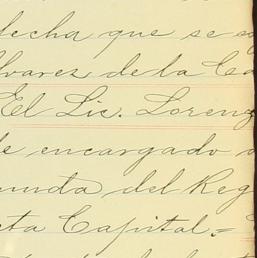 fecha que se
lvarez de la
El Lic. Loren
de encargado
unda del Reg
eta Capital.=